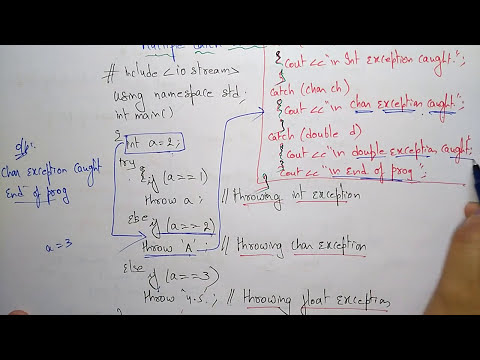 Multiple catch
# Include <iostream>
using namespace std;
int main()
{ int a=2;
try
{ if (a==1)
throw a; // throwing int exception
Else
if (a==2)
throw 'A'; // throwing char exception
Else
if (a==3)
throw 4.5; // throwing float exception
{ cout << "in Int exception caught.";
}
catch (char ch)
{ cout << "in char exception caught.";
}
catch (double d)
{ cout << "in double exception caught";
cout << "in End of prog";
}
o/p:
Char exception caught
End of prog
a=3